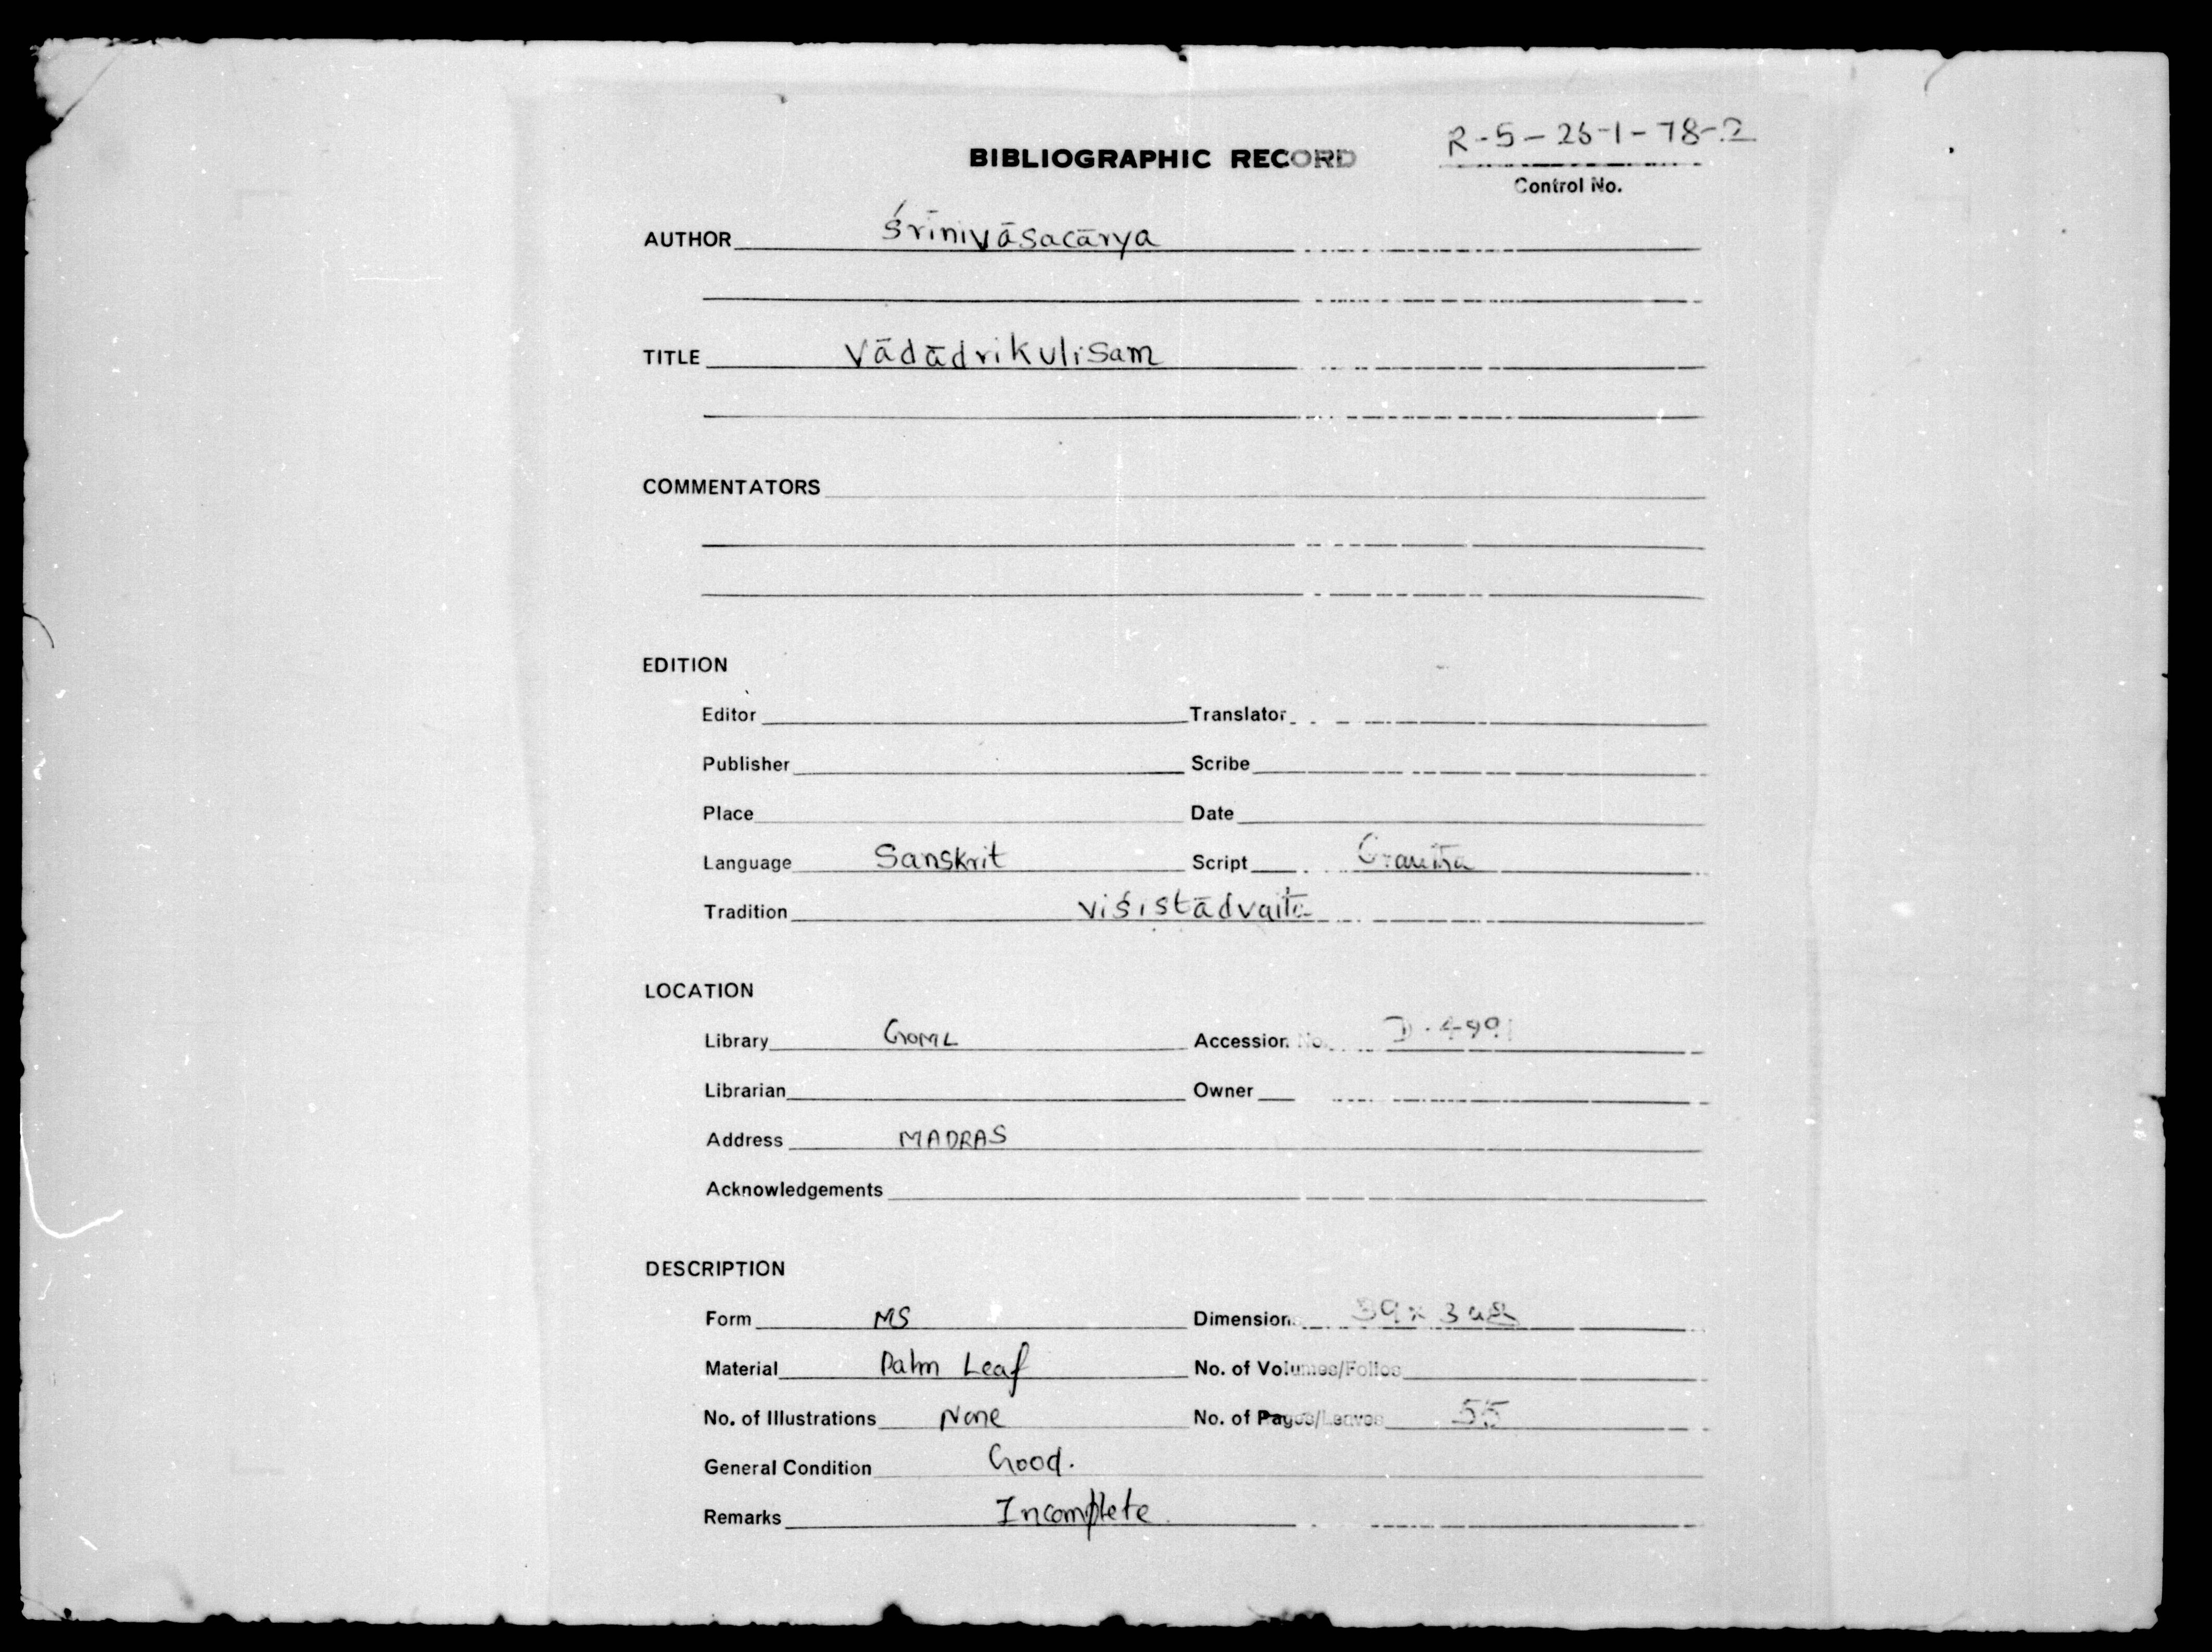 BIBLIOGRAPHIC RECORD
R-5-26-1-78-2
Control No.
AUTHOR Śrīnivāsacārya
TITLE Vādādrikulisam
COMMENTATORS
EDITION
Editor Translator
Publisher Scribe
Place Date
Language Sanskrit Script Grantha
Tradition Viśistādvaita
LOCATION
Library GOML Accession No. D.4991
Librarian Owner
Address MADRAS
Acknowledgements
DESCRIPTION
Form MS Dimensions 39 x 3
Material Palm Leaf No. of Volumes/Folios
No. of Illustrations None No. of Pages/Leaves 55
General Condition Good.
Remarks Incomplete.